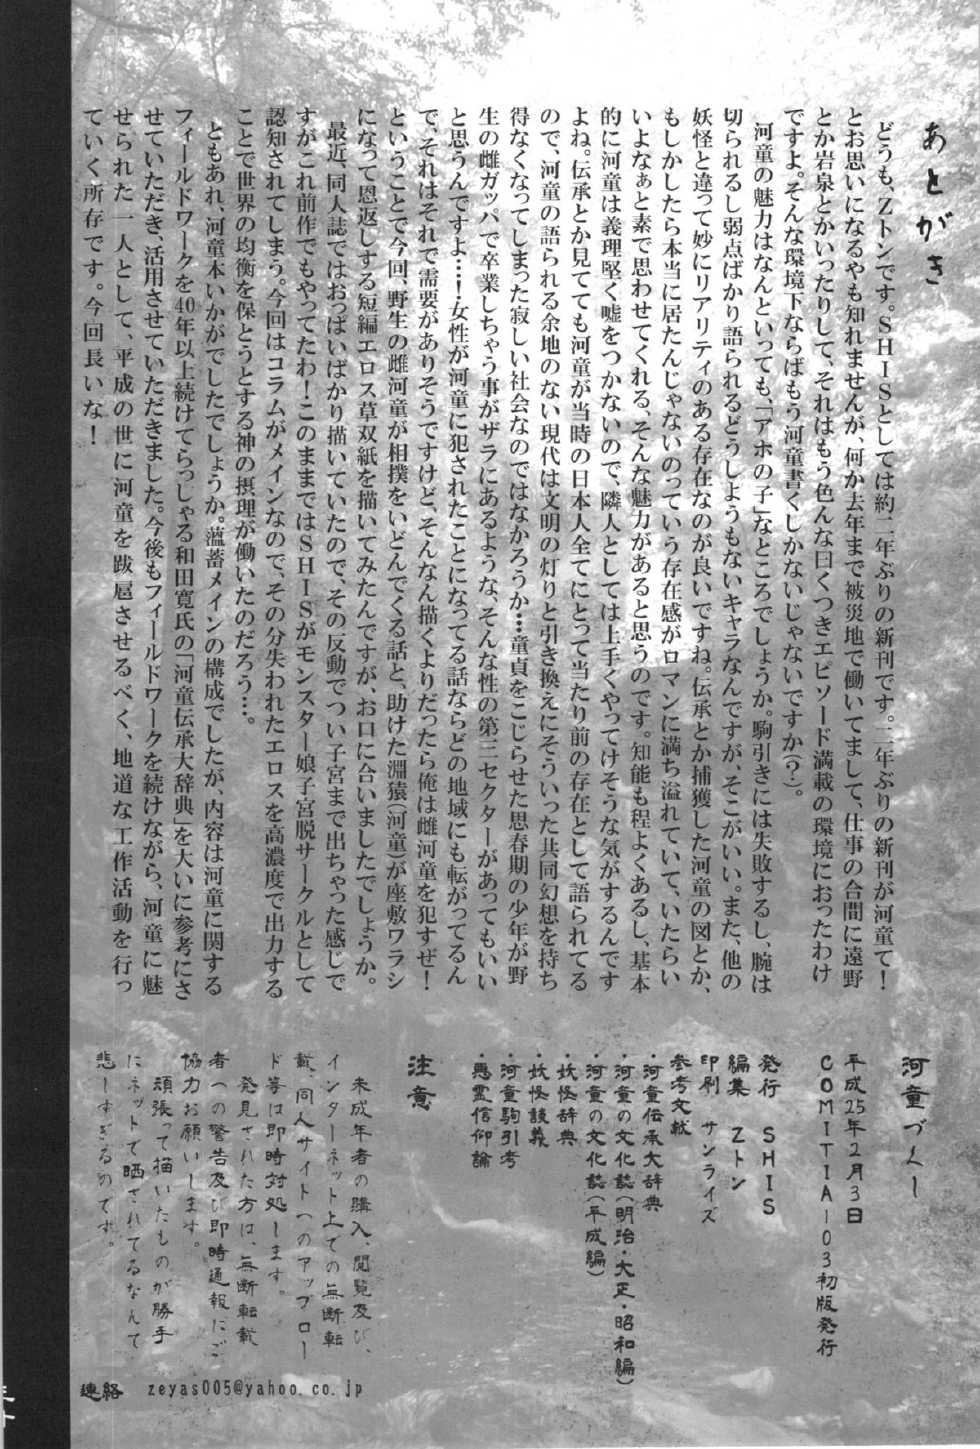 あとがき
どうも、Zトンです。SHISとしては約二年ぶりの新刊です。二年ぶりの新刊が河童て！
とお思いになるやも知れませんが、何か去年まで被災地で働いてまして、仕事の合間に遠野
とか岩泉とかいったりして、それはもう色んな曰くつきエピソード満載の環境におったわけ
ですよ。そんな環境下ならばもう河童書くしかないじゃないですか(？)。
河童の魅力はなんといっても、「アホの子」なところでしょうか。駒引きには失敗するし、腕は
切られるし弱点ばかり語られるどうしようもないキャラなんですが、そこがいい。また、他の
妖怪と違って妙にリアリティのある存在なのが良いですね。伝承とか捕獲した河童の図とか、
もしかしたら本当に居たんじゃないのっていう存在感がロマンに満ち溢れていて、いたらい
いよなぁと素で思わせてくれる、そんな魅力があると思うのです。知能も程よくあるし、基本
的に河童は義理堅く嘘をつかないので、隣人としては上手くやってけそうな気がするんです
よね。伝承とか見てても河童が当時の日本人全てにとって当たり前の存在として語られてる
ので、河童の語られる余地のない現代は文明の灯りと引き換えにそういった共同幻想を持ち
得なくなってしまった寂しい社会なのではなかろうか…童貞をこじらせた思春期の少年が野
生の雌ガッパで卒業しちゃう事がザラにあるような、そんな性の第三セクターがあってもいい
と思うんですよ…！女性が河童に犯されたことになってる話ならどの地域にも転がってるん
で、それはそれで需要がありそうですけど、そんなん描くよりだったら俺は雌河童を犯すぜ！
ということで今回、野生の雌河童が相撲をいどんでくる話と、助けた淵猿(河童)が座敷ワラシ
になって恩返しする短編エロス草双紙を描いてみたんですが、お口に合いましたでしょうか。
最近、同人誌ではおっぱいばかり描いていたので、その反動でつい子宮まで出ちゃった感じで
すがこれ前作でもやってたわ！このままではSHISがモンスター娘子宮脱サークルとして
認知されてしまう。今回はコラムがメインなので、その分失われたエロスを高濃度で出力する
ことで世界の均衡を保とうとする神の摂理が働いたのだろう…。
ともあれ、河童本いかがでしたでしょうか。薀蓄メインの構成でしたが、内容は河童に関する
フィールドワークを40年以上続けてらっしゃる和田寛氏の「河童伝承大辞典」を大いに参考にさ
せていただき、活用させていただきました。今後もフィールドワークを続けながら、河童に魅
せられた一人として、平成の世に河童を跋扈させるべく、地道な工作活動を行っ
ていく所存です。今回長いな！
河童づくし
平成25年2月3日
COMITIA103初版発行
発行 SHIS
編集 Zトン
印刷 サンライズ
参考文献
・河童伝承大辞典
・河童の文化誌(明治・大正・昭和編)
・河童の文化誌(平成編)
・妖怪辞典
・妖怪談義
・河童駒引考
・悪霊信仰論
注意
未成年者の購入、閲覧及び、
インターネット上での無断転
載、同人サイトへのアップロー
ド等は即時対処します。
発見された方は、無断転載
者への警告及び即時通報にご
協力お願いします。
頑張って描いたものが勝手
にネットで晒されてるなんて
悲しすぎるのです。
連絡 zeyas005@yahoo.co.jp